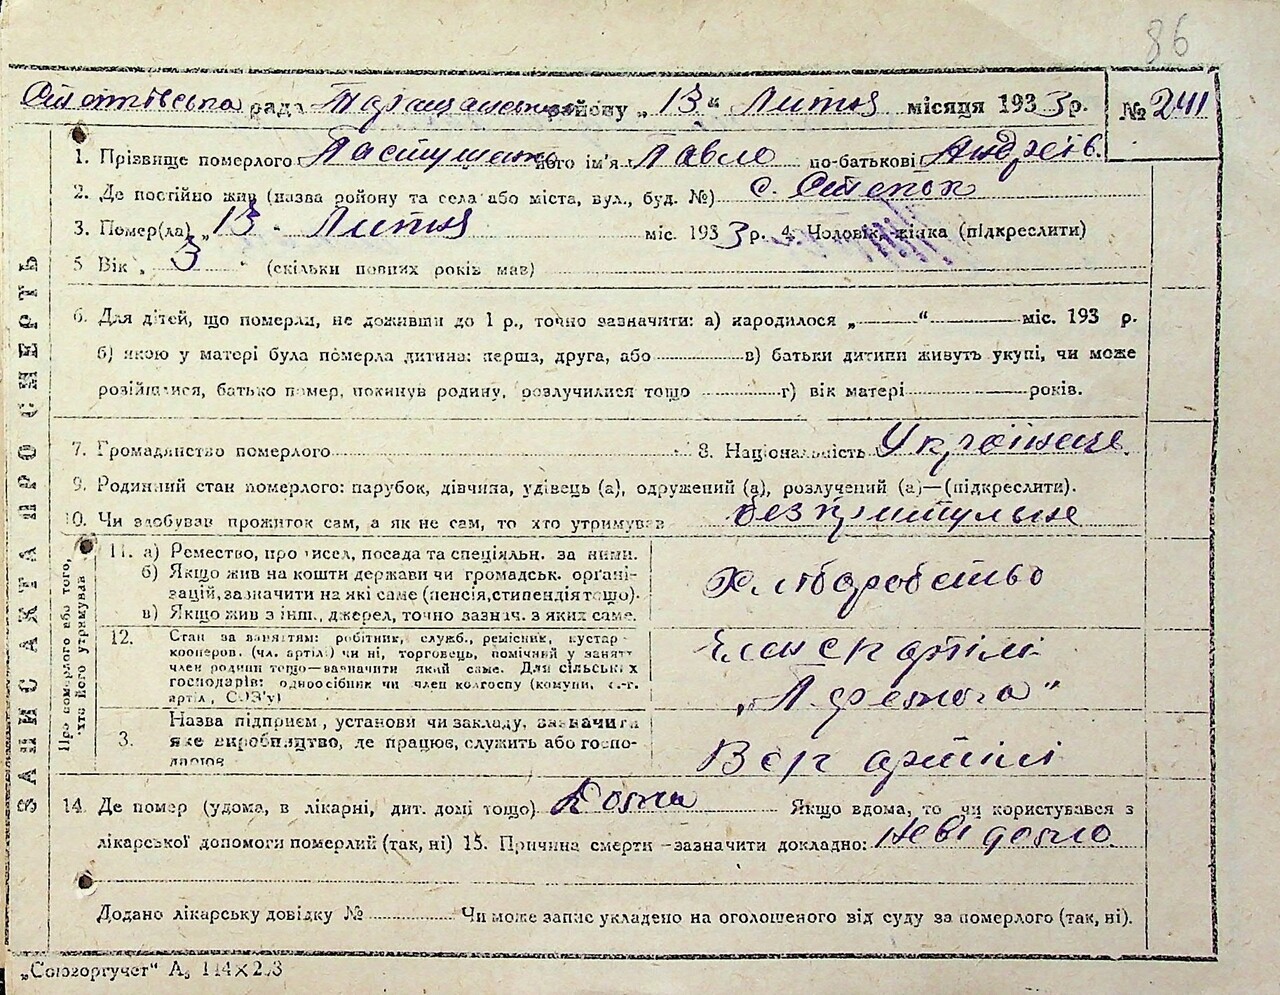 86
рада Таращанського району „13" Лютня місяця 1933 р. № 241
1. Прізвище померлого його ім'я Павло по-батькові Андреів.
2. Де постійно жив (назва району та села або міста, вул., буд. №) с.
3. Помер(ла) „13" Лютня міс. 1933 р. 4. Чоловік, жінка (підкреслити)
5 Вік „ 3 " (скільки повних років мав)
6. Для дітей, що померли, не доживши до 1 р., точно зазначити: а) народилося „ " міс. 193 р.
б) якою у матері була померла дитина: перша, друга, або в) батьки дитини живуть укупі, чи може
розійшлися, батько помер, покинув родину, розлучилися тощо г) вік матері років.
7. Громадянство померлого 8. Національність Українець.
9. Родинний стан померлого: парубок, дівчина, удівець (а), одружений (а), розлучений (а)—(підкреслити).
10. Чи здобував прожиток сам, а як не сам, то хто утримував
ЗАПИС АКТА ПРО СМЕРТЬ
Про померлого або того,
хто його утримував
11. а) Ремество, промисел, посада та спеціяльн. за ними.
б) Якщо жив на кошти держави чи громадськ. органі-
зацій, зазначити на які саме (пенсія, стипендія тощо).
в) Якщо жив з інш., джерел, точно зазнач. з яких саме.
Хліборобство
12. Стан за заняттям: робітник, служб., ремісник, кустар-
кооперов. (чл. артілі) чи ні, торговець, помічний у занятт
член родини тощо—зазначити який саме. Для сільських
господарів: одноосібник чи член колгоспу (комуни, с.-г.
артіл., СОЗ'у)
артілі
3. Назва підприєм., установи чи закладу, зазначити
яке виробництво, де працює, служить або госпо-
дарює
В с г артілі
14. Де помер (удома, в лікарні, дит. домі тощо) Дома Якщо вдома, то чи користувався з
лікарської допомоги померлий (так, ні) 15. Причина смерти - зазначити докладно: невідомо
Додано лікарську довідку № Чи може запис укладено на оголошеного від суду за померлого (так, ні).
„Союзоргучет"